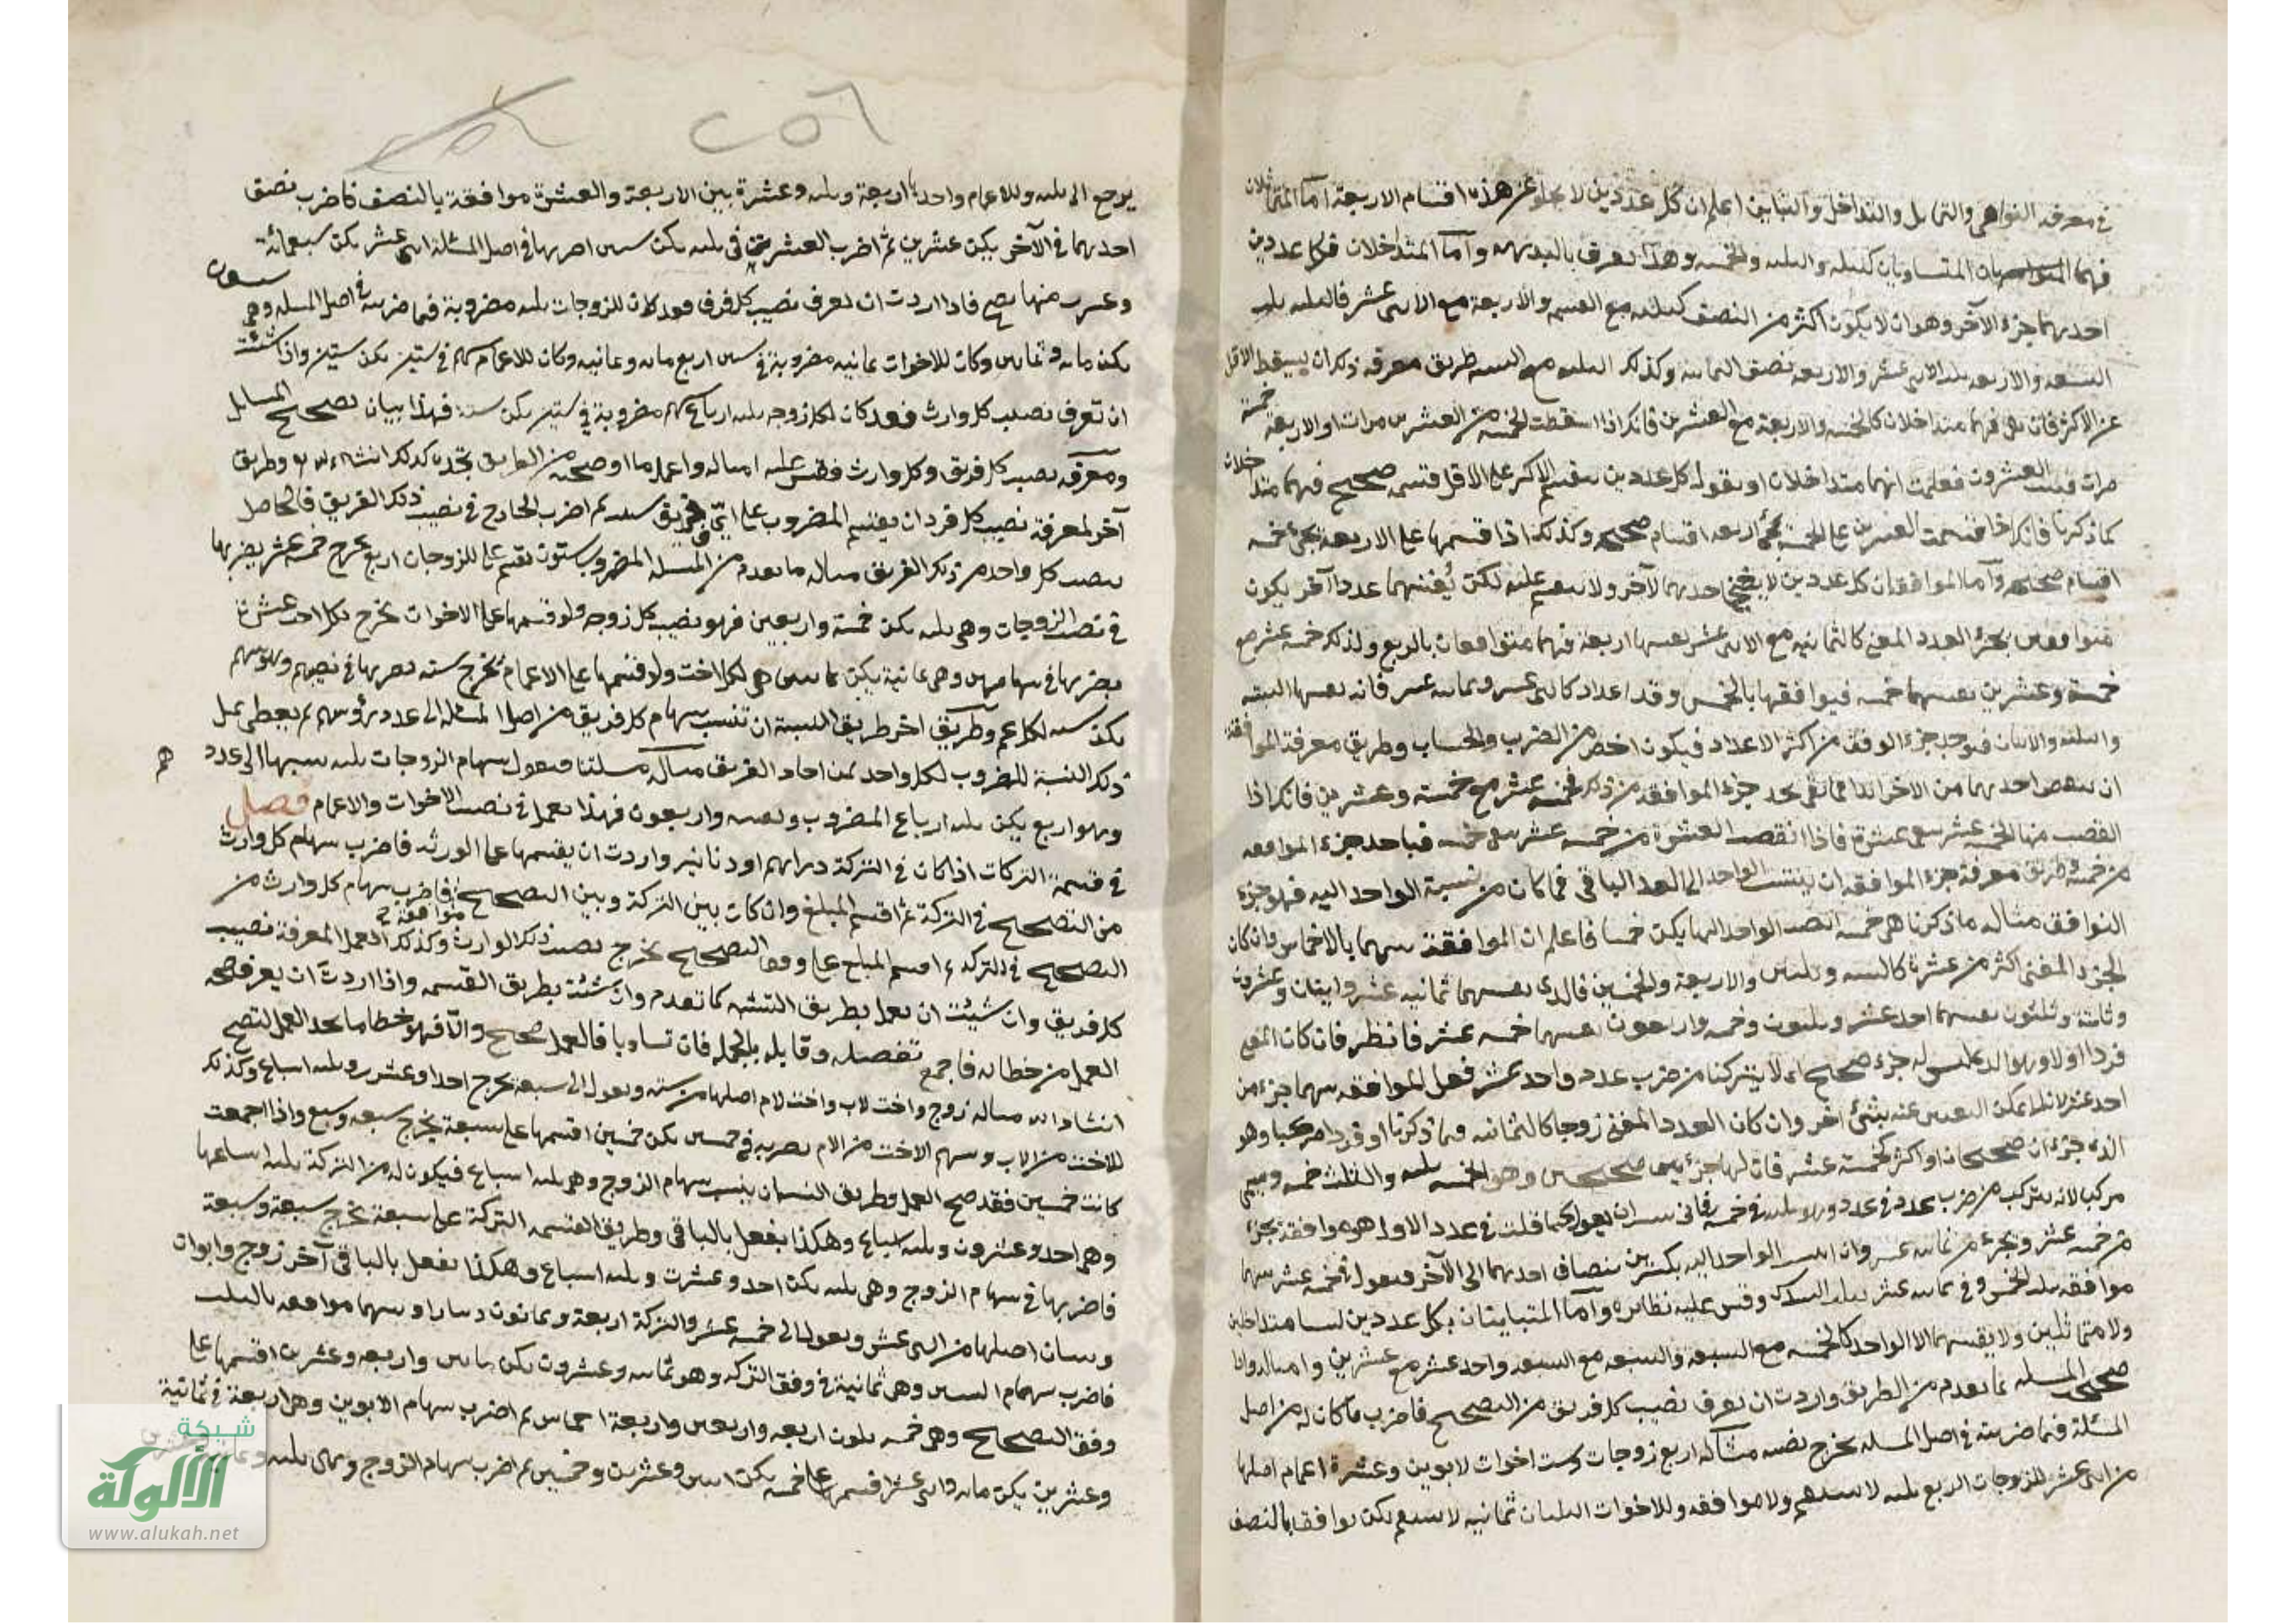 في معرفة التوافق والتماثل والتداخل والتباين اعلم ان كل عددين لا يخلو عن هذه اقسام الاربعة اما المتماثلان
فهما المتساويان كثلثه والثلثه والخمسه وهذا يعرف بالبديهه وآما المتداخلان فكل عددين
احدهما جزء الآخر وهو ان لا يكون اكثر من النصف كثلثه مع التسعه والاربعة مع الاثنى عشر فالثلثه ثلث
التسعه والاربعه ثلث الاثنى عشر والاربعه نصف الثمانيه وكذلك الثلثه مع السته طريق معرفه ذلك ان يسقط الاقل
عن الاكثر فان فنى فهما متداخلان كالخمسه والاربعة مع العشرين فانك اذا اسقطت الخمسه من العشرين مرات او الاربعة خمسة
مرات فنيت العشرون فعلمت انهما متداخلان او نقول كل عددين ينقسم الاكثر على الاقل قسمه صحيح فهما متداخلان
كما ذكرنا فانك اذا قسمت العشرين على الخمسه يجئ اربعه اقسام صحيحه وكذلك اذا قسمها على الاربعة يجئ خمسه
اقسام صحيحه وآما الموافقان كل عددين لا يفنى احدهما لآخر ولا ينقسم عليه لكن يُفنيهما عددا آخر يكون
متوافقين بجزء العدد المفنى كالثمانيه مع الاثنى عشر يفنيها اربعة فهما متوافقان بالربع ولذلك خمسه عشر مع
خمسة وعشرين يفنيهما خمسه فيوافقها بالخمس وقد اعداد كاثنى عشر وثمانيه عشر فانه يفنيها السته
والثلثه والاثنان فيوجد جزء الوفق من اكثر الاعداد فيكون اخصر من الضرب والحساب وطريق معرفة الموافقة
ان ينقص احدهما من الآخر ابدا فما بقى نجد جزء الموافقه من ذلك خمسه عشر مع خمسة وعشرين فانك اذا
انقصت منها الخمسه عشر بقى عشرة فاذا انقصت العشرة من خمسه عشر بقى خمسه فياخذ جزء الموافقه
من خمسه وطريق معرفة جزء الموافقه ان ينتسب الواحد الى العدد الباقي فما كان من نسبة الواحد اليه فهو جزء
التوافق مثاله ما ذكرنا هى خمسه انسب الواحد اليها يكن خمسا فاعلم ان الموافقة بينهما بالاخماس وان كان
الجزء المفنى اكثر من عشرة كالسته وثلثين والاربعة والخمسين فالذى يفنيهما ثمانيه عشر واثنان وعشرون
وثلثة وثلثون يفنيهما احد عشر وثلثون وخمسه واربعون يفنيهما خمسه عشر فانظر فان كان المفنى
فردا اولا وهو الذى ليس له جزء صحيح اى لا يتركب من ضرب عدد واحد عشر فقل الموافقه بينهما بجزء من
احد عشر لانه لا يمكن التعبير عنه بشئ آخر وان كان العدد المفنى زوجا كالثمانيه فما ذكرنا او فردا مركبا وهو
الذى جزءان صحيحان او اكثر كخمسة عشر فان لها جزئين صحيحين وهو الخمسه ثلثه والثلث خمسه ويسمى
مركب لانه يتركب من ضرب عدد في عدد وهو ثلثه في خمسه فانى شئت ان تقول كما قلت في عدد الاول هو موافقة بجزء
من خمسه عشر وبجزء من ثمانيه عشر وان انسب الواحد اليه بكسرين يضاف احدهما الى الآخر فنقول في خمسه عشر بينهما
موافقه ثلث الخمس وفى ثمانيه عشر ثلث السدس وقس عليه نظائره وآما المتباينان بكل عددين ليسا متداخلين
ولا متماثلين ولا يفنيهما الا الواحد كالخمسه مع السبعه والتسعه مع السبعه واحد عشر مع عشرين وامثاله واذا
صححت المسله بما تقدم من الطريق واردت ان تعرف نصيب كل فريق من التصحيح فاضرب ما كان له من اصل
المسئلة فيما ضربته في اصل المسله يخرج نصيبه مثاله اربع زوجات وست اخوات لابوين وعشرة اعمام اصلها
من اثنى عشر للزوجات الربع ثلثه لا ينقسم ولا موافقه وللاخوات الثلثان ثمانيه لا ينقسم لكن يوافق بالنصف
يرجع الى ثلثه وللاعمام واحد اربعة وثلثه وعشرة بين الاربعة والعشرة موافقة بالنصف فاضرب نصف
احدهما في الآخر يكن عشرين ثم اضرب العشرين في ثلثه يكن ستين اضربها في اصل المسئلة اثنى عشر يكن سبعمائة
وعشرين منها يصح فاذا اردت ان تعرف نصيب كل فريق فقد كان للزوجات ثلثه مضروبة فيما ضربته في اصل المسله وهى ستون
يكن مائه وثمانين وكان للاخوات ثمانيه مضروبة في ستين اربع مائه وثمانيه وكان للاعمام سهم في ستين يكن ستين واذا شئت
ان تعرف نصيب كل وارث فقد كان لكل زوجه ثلثه ارباع سهم مضروبة في ستين يكن سته فهذا بيان تصحيح المسايل
ومعرفه نصيب كل فريق وكل وارث فقس عليه امثاله واعمل ما اوضحته من الطريق تجده كذلك انشاء الله تع وطريق
آخر لمعرفة نصيب كل فرد ان يقسم المضروب على اىّ فريق شئت ثم اضرب الخارج في نصيب ذلك الفريق فالحاصل
نصيب كل واحد من ذلك الفريق مثاله ما تقدم من المسئلة المضروب ستون تقسم على للزوجات اربع يخرج خمسه عشر يضربها
في نصيب الزوجات وهى ثلثه يكن خمسة واربعين فهو نصيب كل زوجه ولو قسمها على الاخوات يخرج لكل احد عشرة
يضربها في سهامهن وهى ثمانية يكن ثمانين هى لكل اخت ولو قسمها على الاعمام يخرج سته يضربها في نصيبهم وهو سهم
يكن سته لكل عم وطريق اخر طريق النسبة ان تنسب سهام كل فريق من اصل المسئله الى عدد رؤسهم ثم يعطى بمثل
ذلك النسبة للمضروب لكل واحد من احاد الفريق مثاله مسئلتنا فنقول سهام الزوجات ثلثه نسبها الى عددهم
وهو اربع يكن ثلثه ارباع المضروب وخمسه واربعون فهذا يعمل في نصيب الاخوات والاعمام فصل
في قسمة التركات اذا كان في التركة دراهم او دنانير واردت ان يقسمها على الورثه فاضرب سهام كل وارث
من التصحيح في التركة ثم اقسم المبلغ وان كان بين التركة وبين التصحيح موافقة فاضرب سهام كل وارث من
التصحيح في التركه ثم اقسم المبلغ على وفق التصحيح يخرج نصيب ذلك الوارث وكذلك العمل لمعرفة نصيب
كل فريق وان شئت ان يعمل بطريق النسبه كما تقدم وان شئت بطريق القسمه واذا اردت ان يعرف صحه
العمل من خطائه فاجمع تفصيله وقابله بالجمله فان تساويا فالعمل صحيح والا فهو خطا ما يجد العمل لتصح
انشاء الله مثاله زوج واخت لاب واخت لام اصلها من سته وتعول الى سبعة يخرج احدا وعشرين وثلثه اسباع وكذلك
للاخت من الاب وسهم الاخت من الام يضربه في خمسين يكن خمسين اقسمها على سبعة يخرج سبعه وسبع واذا اجمعت
كانت خمسين فقد صح العمل وطريق النسبه ان ينسب سهام الزوج وهى ثلثه اسباع فيكون له من التركة ثلثه اسباعها
وهى احد وعشرون وثلثه اسباع وهكذا يفعل بالباقي وطريق القسمه التركة على سبعة يخرج سبعة وسبعة
فاضربها في سهام الزوج وهى ثلثه يكن احد وعشرين وثلثه اسباع وهكذا تفعل بالباقي آخر زوج وابوان
وبنتان اصلها من اثنى عشر ويعول الى خمسه عشر والتركة اربعة وثمانون دينارا وبينهما موافقه بالثلث
فاضرب سهام البنتين وهى ثمانية في وفق التركه وهو ثمانيه وعشرون يكن مائتين واربعه وعشرين اقسمها على
وفق التصحيح وهى خمسه يكون اربعه واربعين واربعة اخماس ثم اضرب سهام الابوين وهى اربعة في ثمانية
وعشرين يكن مائه واثنى عشر اقسمها على خمسه يكن اثنين وعشرين وخمسين ثم اضرب سهام الزوج وهى ثلثه
شبكة
الألوكة
www.alukah.net